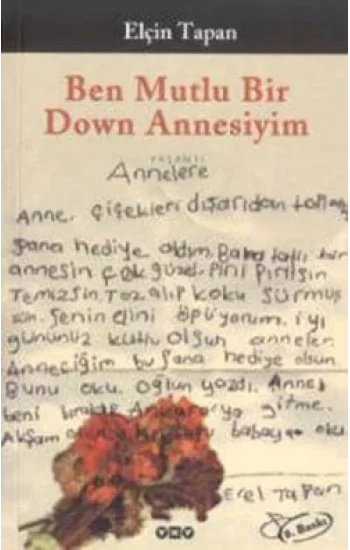 Elçin Tapan
Ben Mutlu Bir
Down Annesiyim
YAŞANTI
Annelere
Anne, çiçekleri dışarıdan
şana hediye aldım. Bana tatlı bir
annesin çok güzel. Pırıl Pırılsın
Temizsin. Toz alıp koku sürmüş
sün. Şenin elini öpüyorum. iyi
gününüz kutlu olsun anneler.
Anneciğim bu şana hediye olsun.
Bunu oku. Oğlun yazdı. Anne
beni bırakıp Ankara'ya gitme.
Akşam babaya oku
Erel Tapan
YKY
8. Baskı